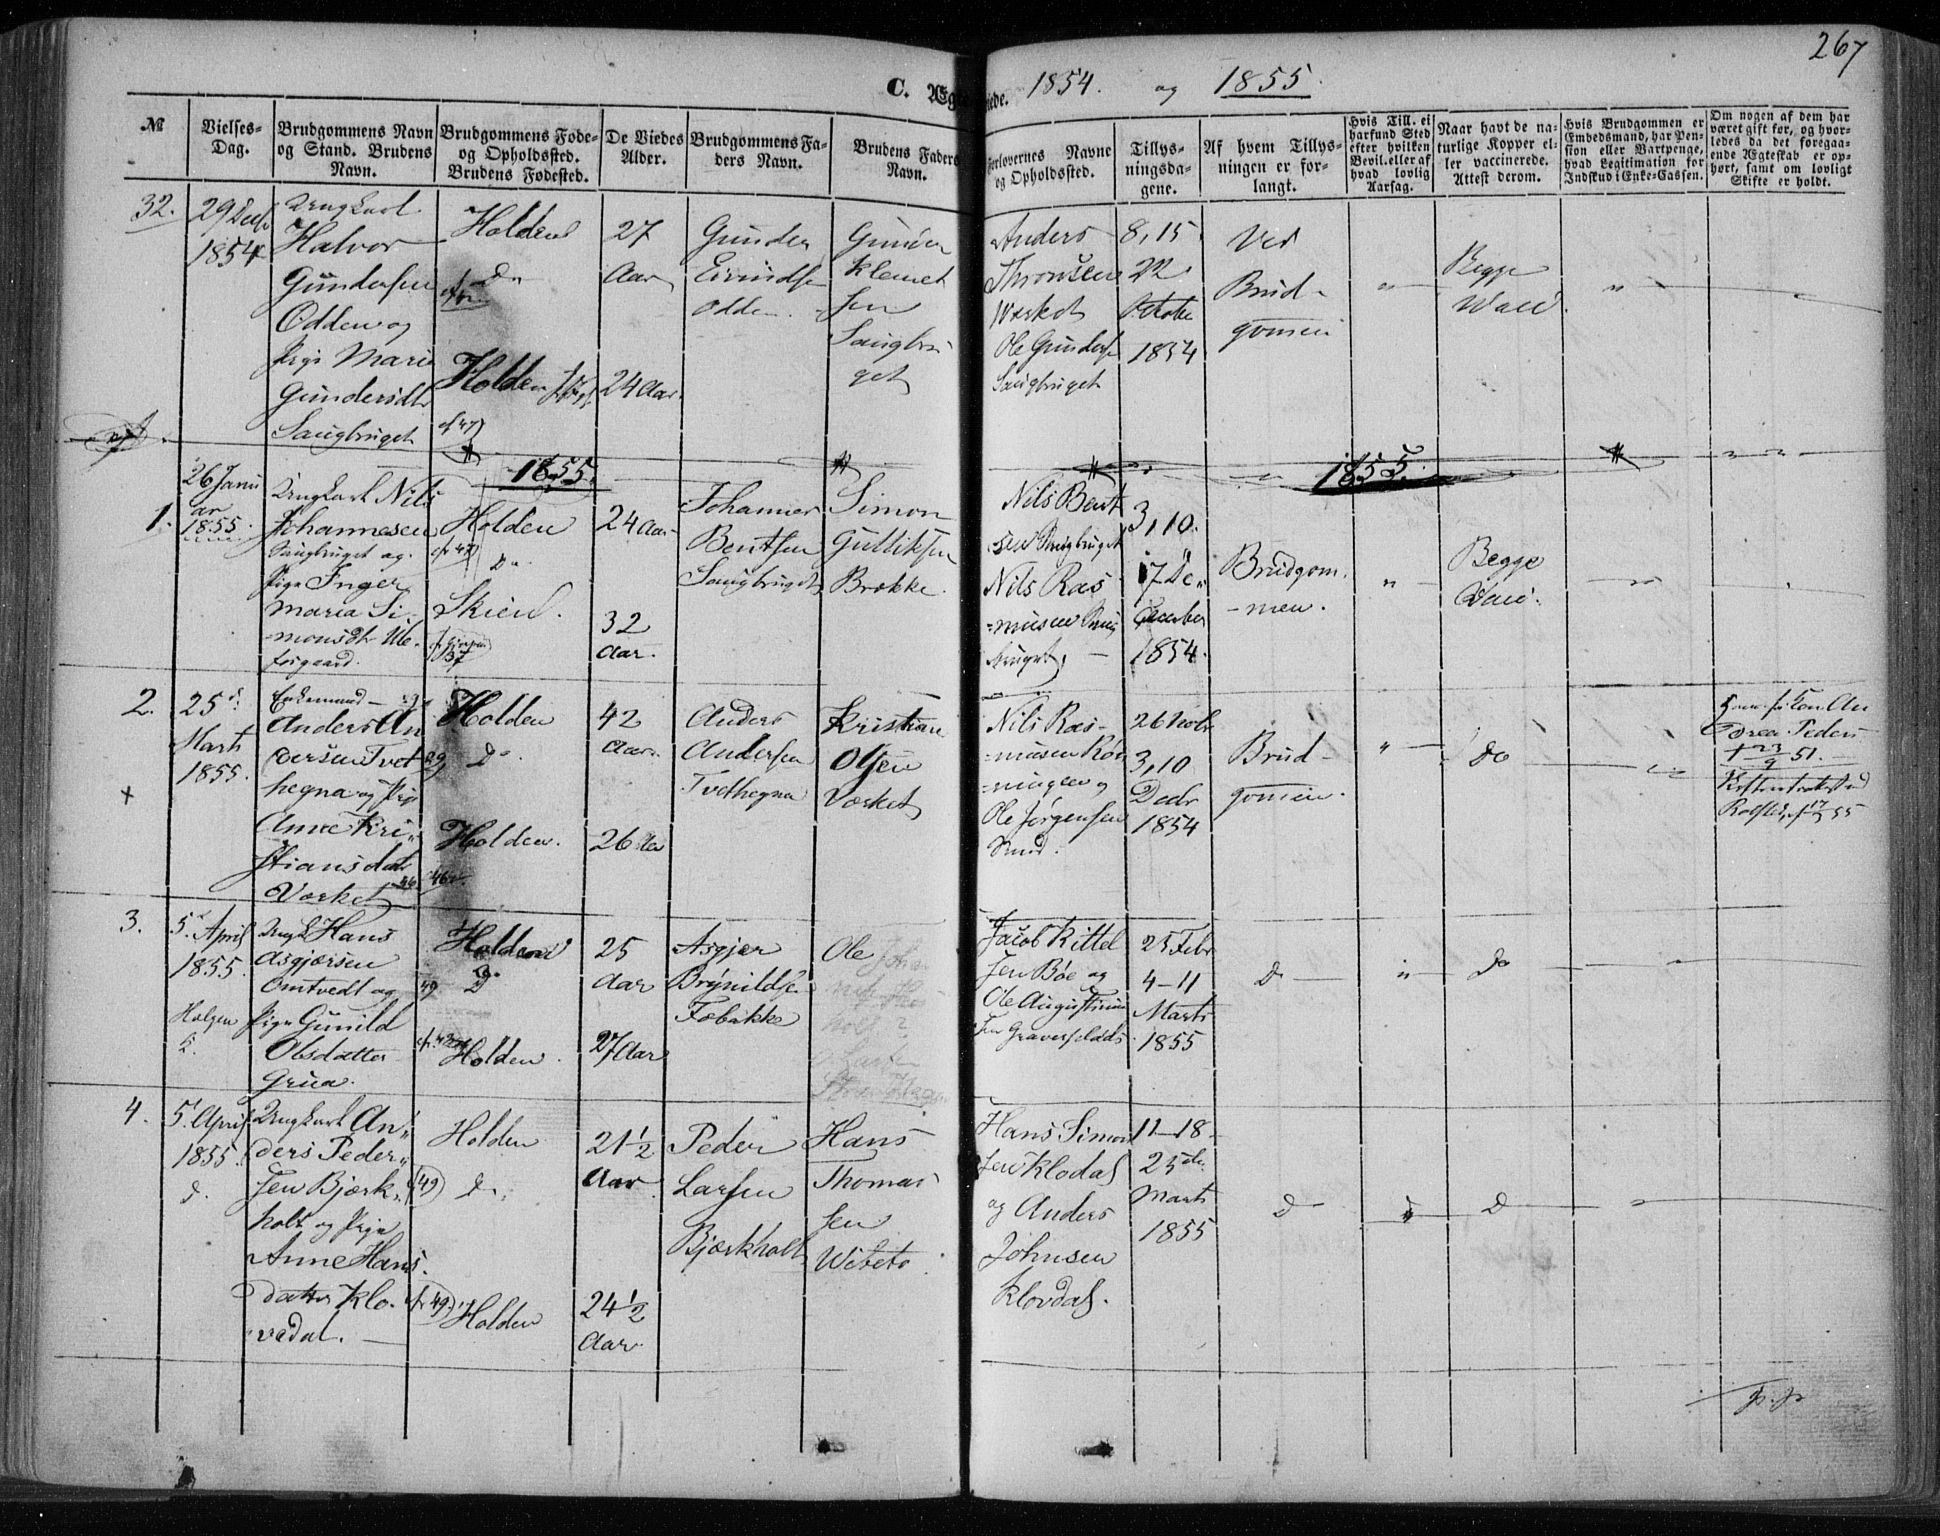 267
C. Ægte viede. 1854. og 1855.
№
Vielses-
Dag.
Brudgommens Navn
og Stand. Brudens
Navn.
Brudgommens Føde-
og Opholdssted.
Brudens Fødested.
De Viedes
Alder.
Brudgommens Fa-
ders Navn.
Brudens Faders
Navn.
Forlovernes Navne
og Opholdssted.
Tillys-
ningsda-
gene.
Af hvem Tillys-
ningen er for-
langt.
Hvis Till. ei
harfund Sted
efter hvilken
Bevil. eller af
hvad lovlig
Aarsag.
Naar havt de na-
turlige Kopper el-
ler vaccinerede.
Attest derom.
Hvis Brudgommen er
Embedsmand, har Pen-
sion eller Vartpenge,
hvad Legitimation for
Indskud i Enke-Cassen.
Om nogen af dem har
været gift før, og hvor-
ledes da det foregaa-
ende Ægteskab er op-
hørt, samt om lovligt
Skifte er holdt.
32.
1854
Ungkarl
Halvor
Gundersen
Odden og
Pige Marie
Gundersdtr
Saugbruget
Holden
Do
Holden
cf 47)
27
Aar
24 Aar.
Gunder
Eivindse
Odden.
Gunder
Klemet
sen
Saugbru
get
Anders
Thronsen
Værket
Ole Gunderse
Saugbruget
8, 15
22
Octobe
1854
Ved
Brud-
gomen
"
Begge
Vacc.
"
1855.
1855.
1.
26 Janu
ar
1855.
Ungkarl Nils
Johannesen
Saugbruget og
Pige Inger
Maria Si-
monsdtr Ule-
fosgaard.
Holden
cf 47)
Do
Skien.
37
24 Aar
32
Aar.
Johannes
Bentsen
Saugbruget
Simon
Gulliksen
Brække.
Nils Bent
sen Saugbruget
Nils Ras
-musen Saug
bruget,
3, 10.
17 De"
cember
1854.
Brudgom.
-men.
"
Begge
Vacc.
"
2.
25d
Marts
1855.
+
Enkemand
Anders An
dersen Tvet
hegna og Pige
Anne Kri"
stiansdat
Værket
Holden
49
Do
Holden.
46
42
Aar.
26 Aar
Anders
Andersen
Tvethegna
Kristian
Olsen
Værket
Nils Ras-
musen Røn
ningen og
Ole Jørgensen
26 Nobr
3, 10
Decbr
1854
Brud-
gomen.
"
Do
"
An
Drea Peders
+ 23/9 51.
3.
5. April
1855.
Helgen
K.
Ungk. Hans
Asgjersen
Omtvedt og
Pige Gunild
Olsdatter
Grua.
Holden
49
Do
Holden
25
Aar
27 Aar
Asgjer
Brynildse
Tæbakke
Ole
holt?
Jacob Kittel
sen Bøe og
Ole Augustinus
sen
25 Febr
4-11
Marts
1855
Do
"
Do
4.
5. April
1855.
d.
Ungkarl An"
ders Peder"
sen Bjørk"
holt og Pige
Anne Hans.
datter Klo-
vedal.
Holden
(49)
Do
cf 49)
Holden
21 1/2
Aar
24 1/2
Aar
Peder
Larsen
Bjørkholt
Hans
Thomas
sen
Wibeto
Hans Simon
sen Klodal
og Anders
Johnsen
Klovdal.
11-18-
25 de
Marts
1855
Do
"
Do